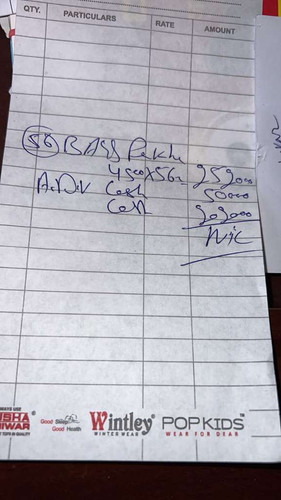 QTY. PARTICULARS RATE AMOUNT
56 BAGS
4500X56= 252000
A.D.V Cash 50000
Cash 202000
Nil
ALWAYS USE
ISHA
IWAR
Good Sleep
Good Health
Wintley
WINTER WEAR
POPKIDS™
WEAR FOR DEAR